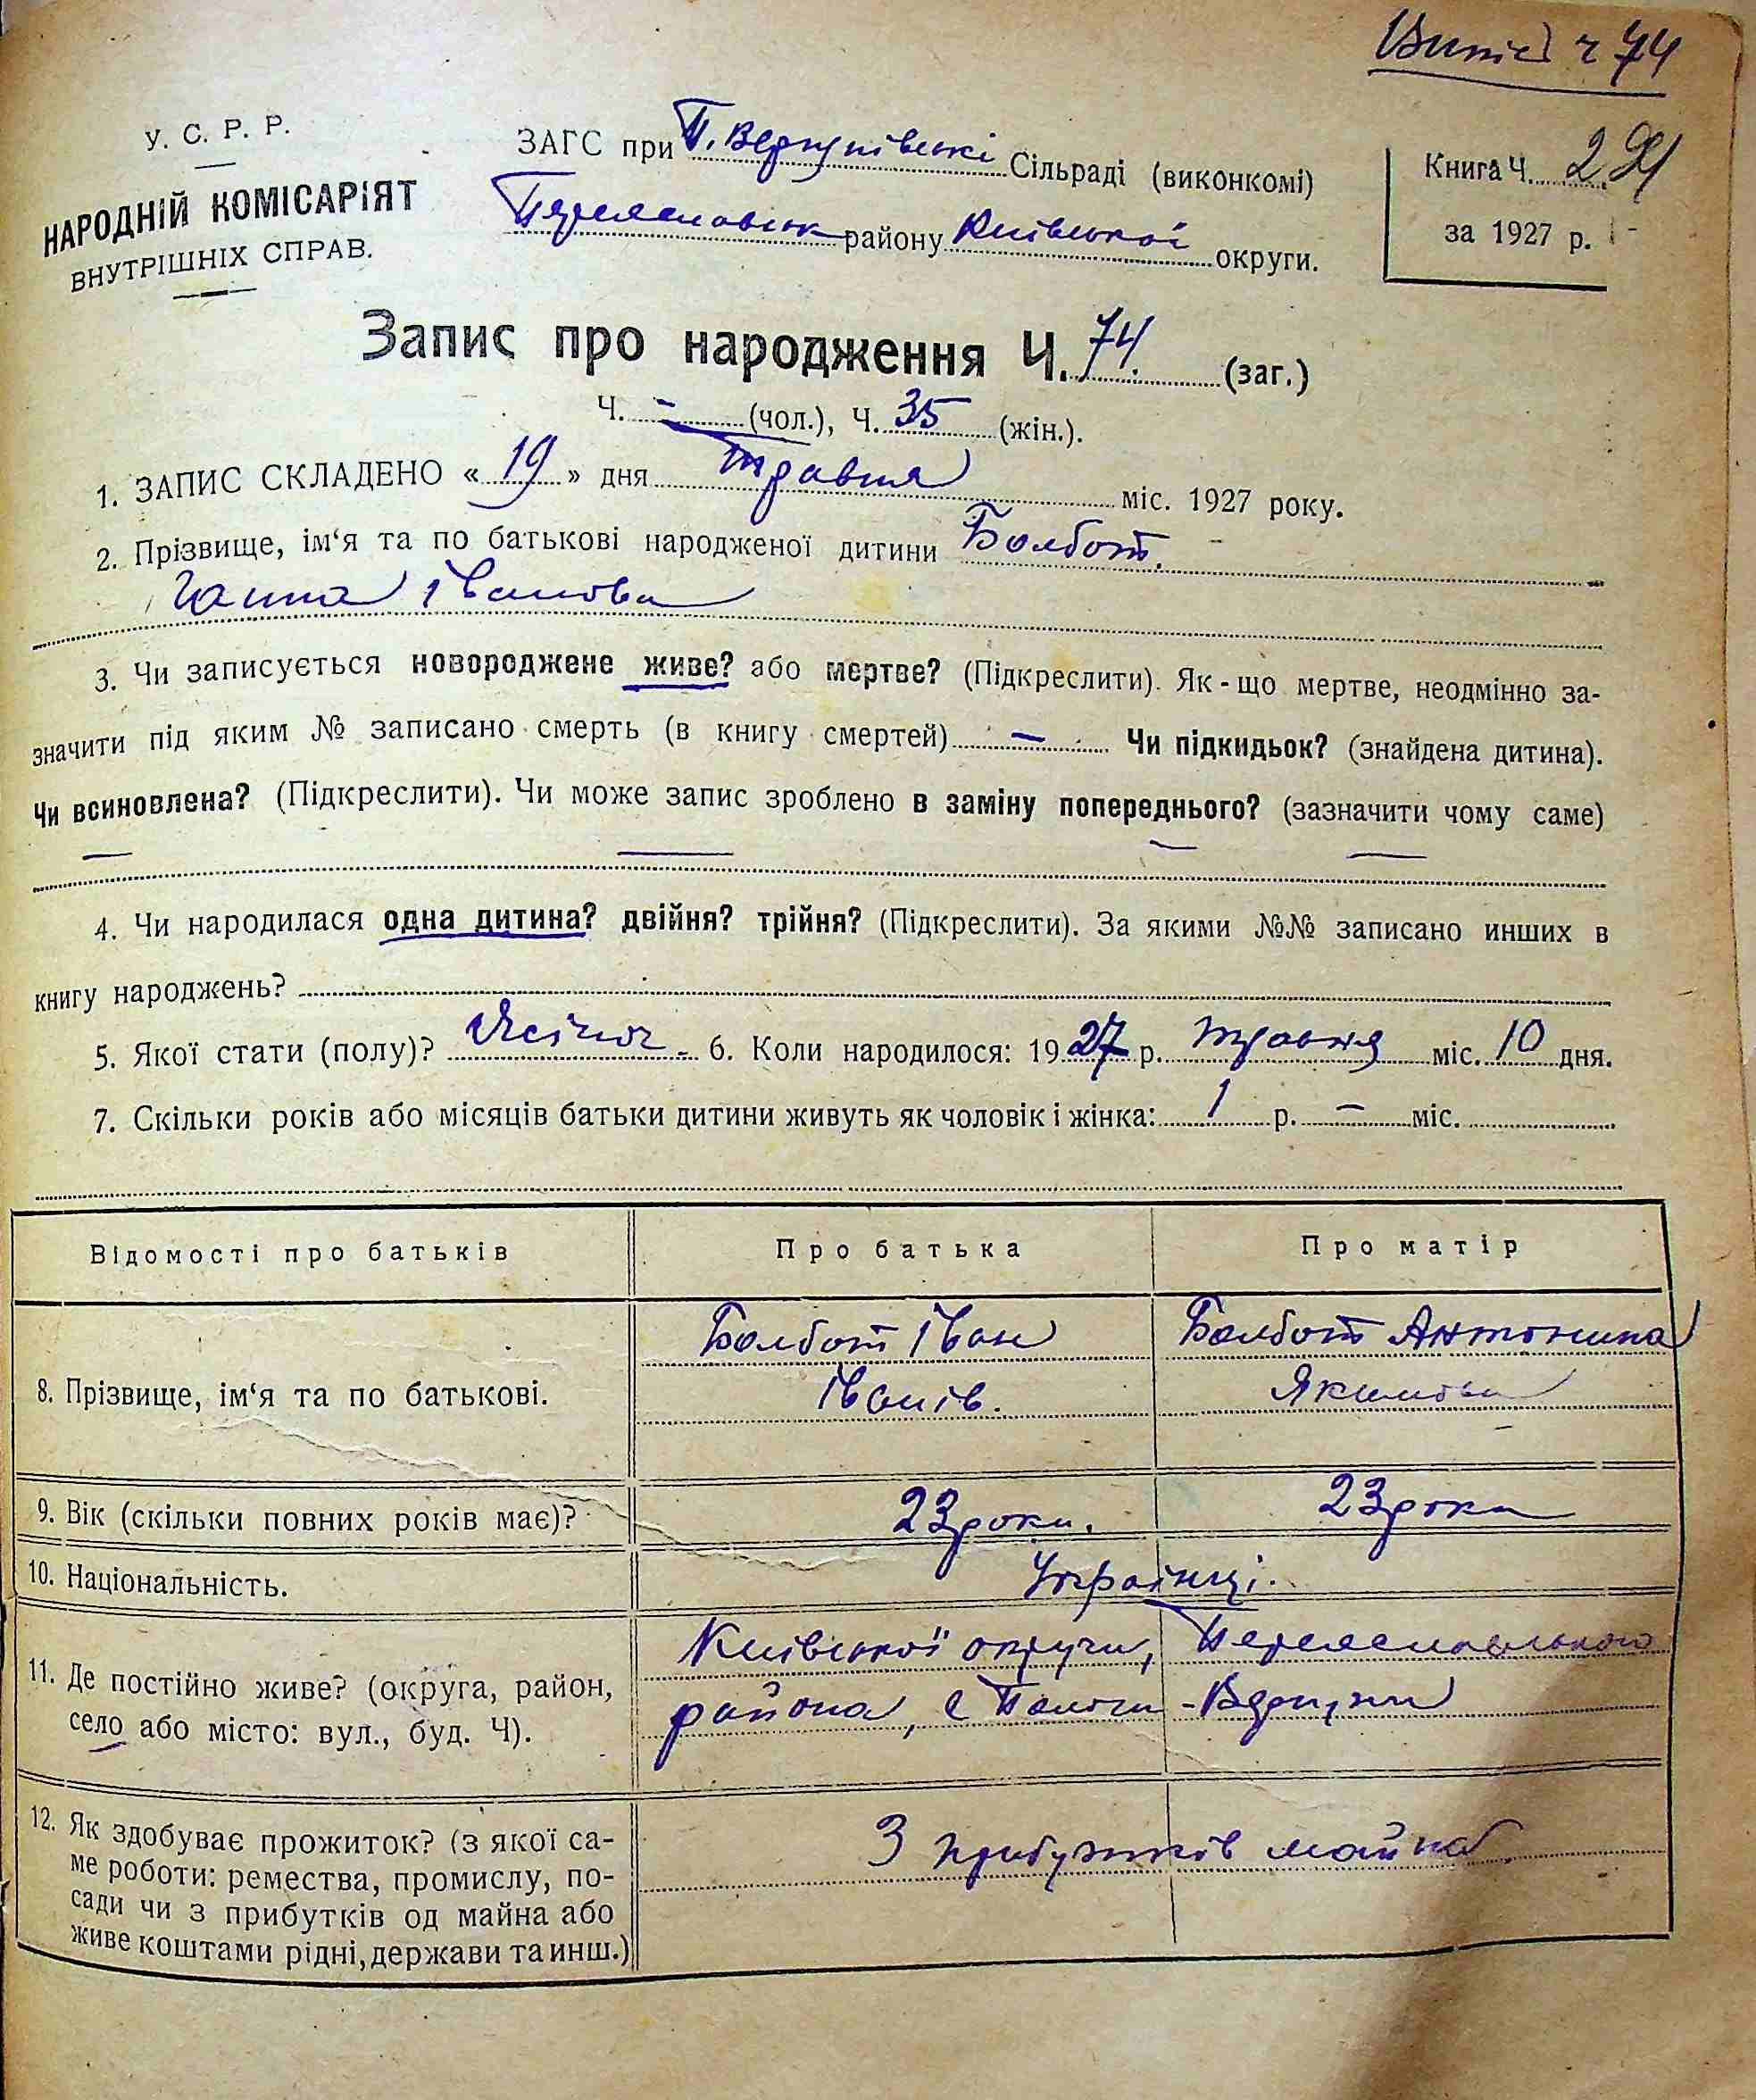 Випис ч 74
У. С. Р. Р.
НАРОДНІЙ КОМІСАРІЯТ
ВНУТРІШНІХ СПРАВ.
ЗАГС при П. Вергунівські Сільраді (виконкомі)
Переяславськ району Київської округи.
Книга Ч. 2
за 1927 р.
Запис про народження Ч. 74. (заг.)
Ч. - (чол.), Ч. 35 (жін.).
1. ЗАПИС СКЛАДЕНО « 19 » дня травня міс. 1927 року.
2. Прізвище, ім‘я та по батькові народженої дитини Болбот.
Ганна Іванова
3. Чи записується новороджене живе? або мертве? (Підкреслити). Як-що мертве, неодмінно за-
значити під яким № записано смерть (в книгу смертей) — Чи підкидьок? (знайдена дитина).
Чи всиновлена? (Підкреслити). Чи може запис зроблено в заміну попереднього? (зазначити чому саме)
4. Чи народилася одна дитина? двійня? трійня? (Підкреслити). За якими №№ записано инших в
книгу народжень?
5. Якої стати (полу)? Жіноч. 6. Коли народилося: 1927 р. травня міс. 10 дня.
7. Скільки років або місяців батьки дитини живуть як чоловік і жінка: 1 р. — міс.
Відомості про батьків Про батька Про матір
8. Прізвище, ім‘я та по батькові. Болбот Іван Болбот Антонина
Іванів. Якимова
9. Вік (скільки повних років має)? 23 роки. 23 роки
10. Національність. Українці.
11. Де постійно живе? (округа, район, Київської округи, Переяславського
село або місто: вул., буд. Ч). района, с Пологи-Вергуни
12. Як здобуває прожиток? (з якої са- З прибутків майна.
ме роботи: ремества, промислу, по-
сади чи з прибутків од майна або
живе коштами рідні, держави та инш.)